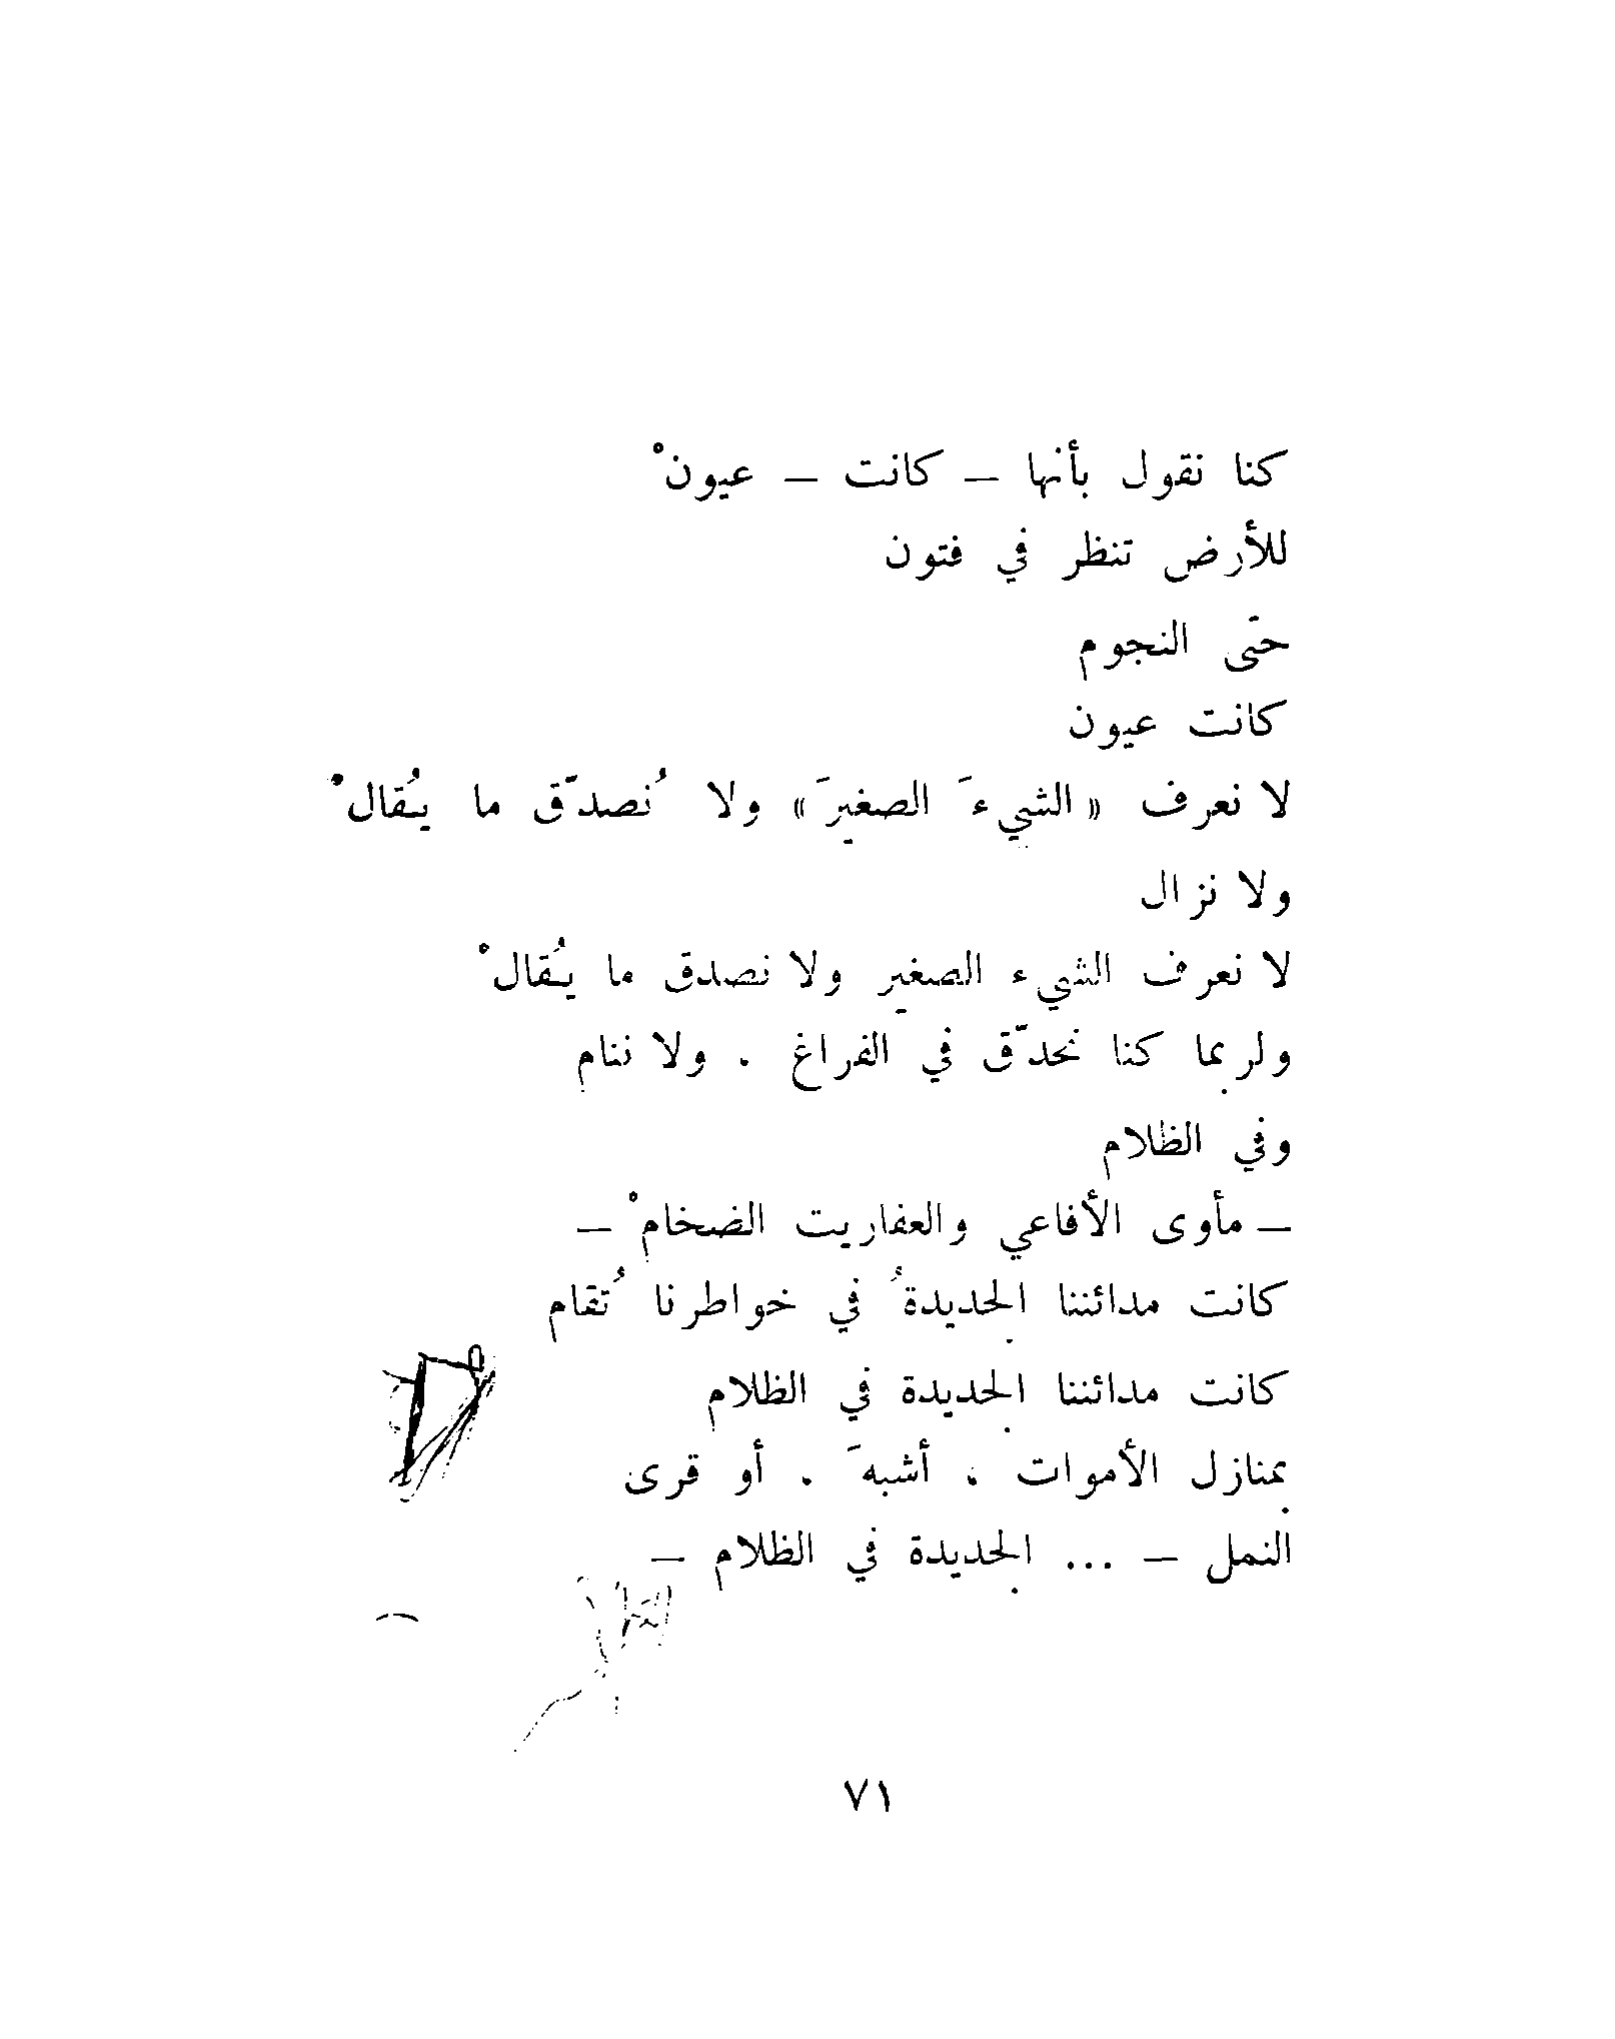 كنا نقول بأنها – كانت – عيونْ
للأرض تنظر في فتون
حتّى النجوم
كانت عيون
لا نعرف «الشيءَ الصغيرَ» ولا نُصدّق ما يُقالْ
ولا نزال
لا نعرف الشيء الصغير ولا نصدق ما يُقالْ
ولربما كنا نحدّق في الفراغ . ولا ننام
وفي الظلام
– مأوى الأفاعي والعفاريت الضخامْ –
كانت مدائننا الجديدةُ في خواطرنا تُقام
كانت مدائننا الجديدة في الظلام
بمنازل الأموات ، أشبهَ . أو قرى
النمل – ... الجديدة في الظلام –
٧١